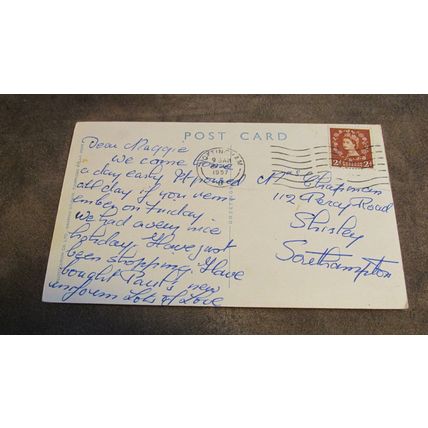 POST CARD
NOTTINGHAM
1957
2d 2d
Dear Maggie
we come home
a day early It poured
all day if you rem
ember on Friday.
we had a very nice
holiday. Have just
been shopping. Have
bought Paul's new
uniform Lots of Love
Mrs Chapman
112 Percy Road
Shirley
Southampton